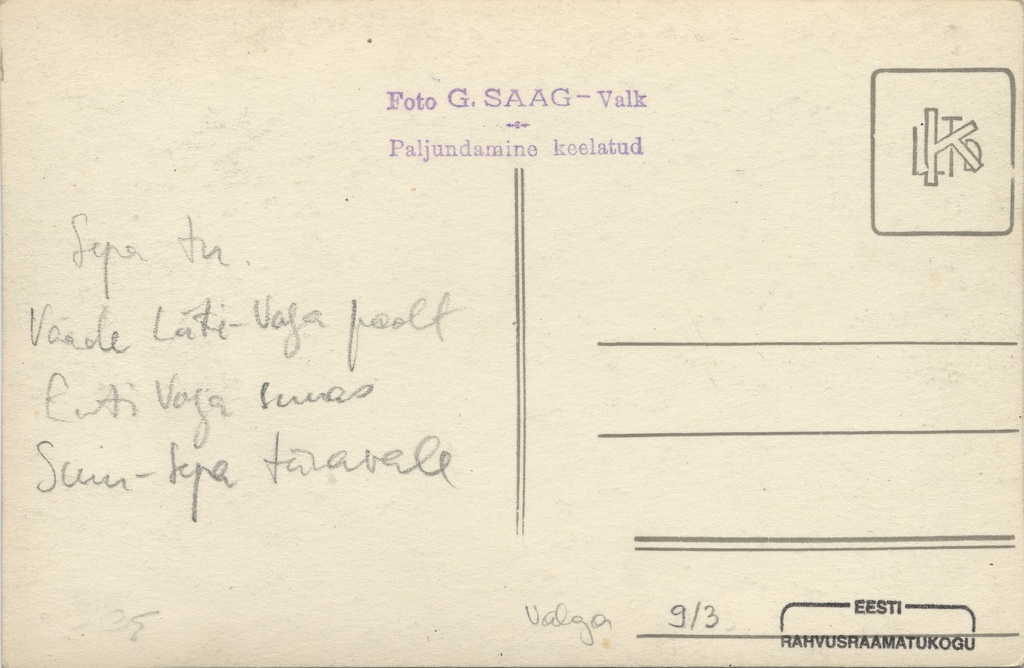 Foto G. SAAG-Valk
Paljundamine keelatud
Sepa tn.
Vaade Läti-Valga poolt
Eesti Valga suunas
Suur-Sepa tänavale
Valga 9/3
EESTI
RAHVUSRAAMATUKOGU